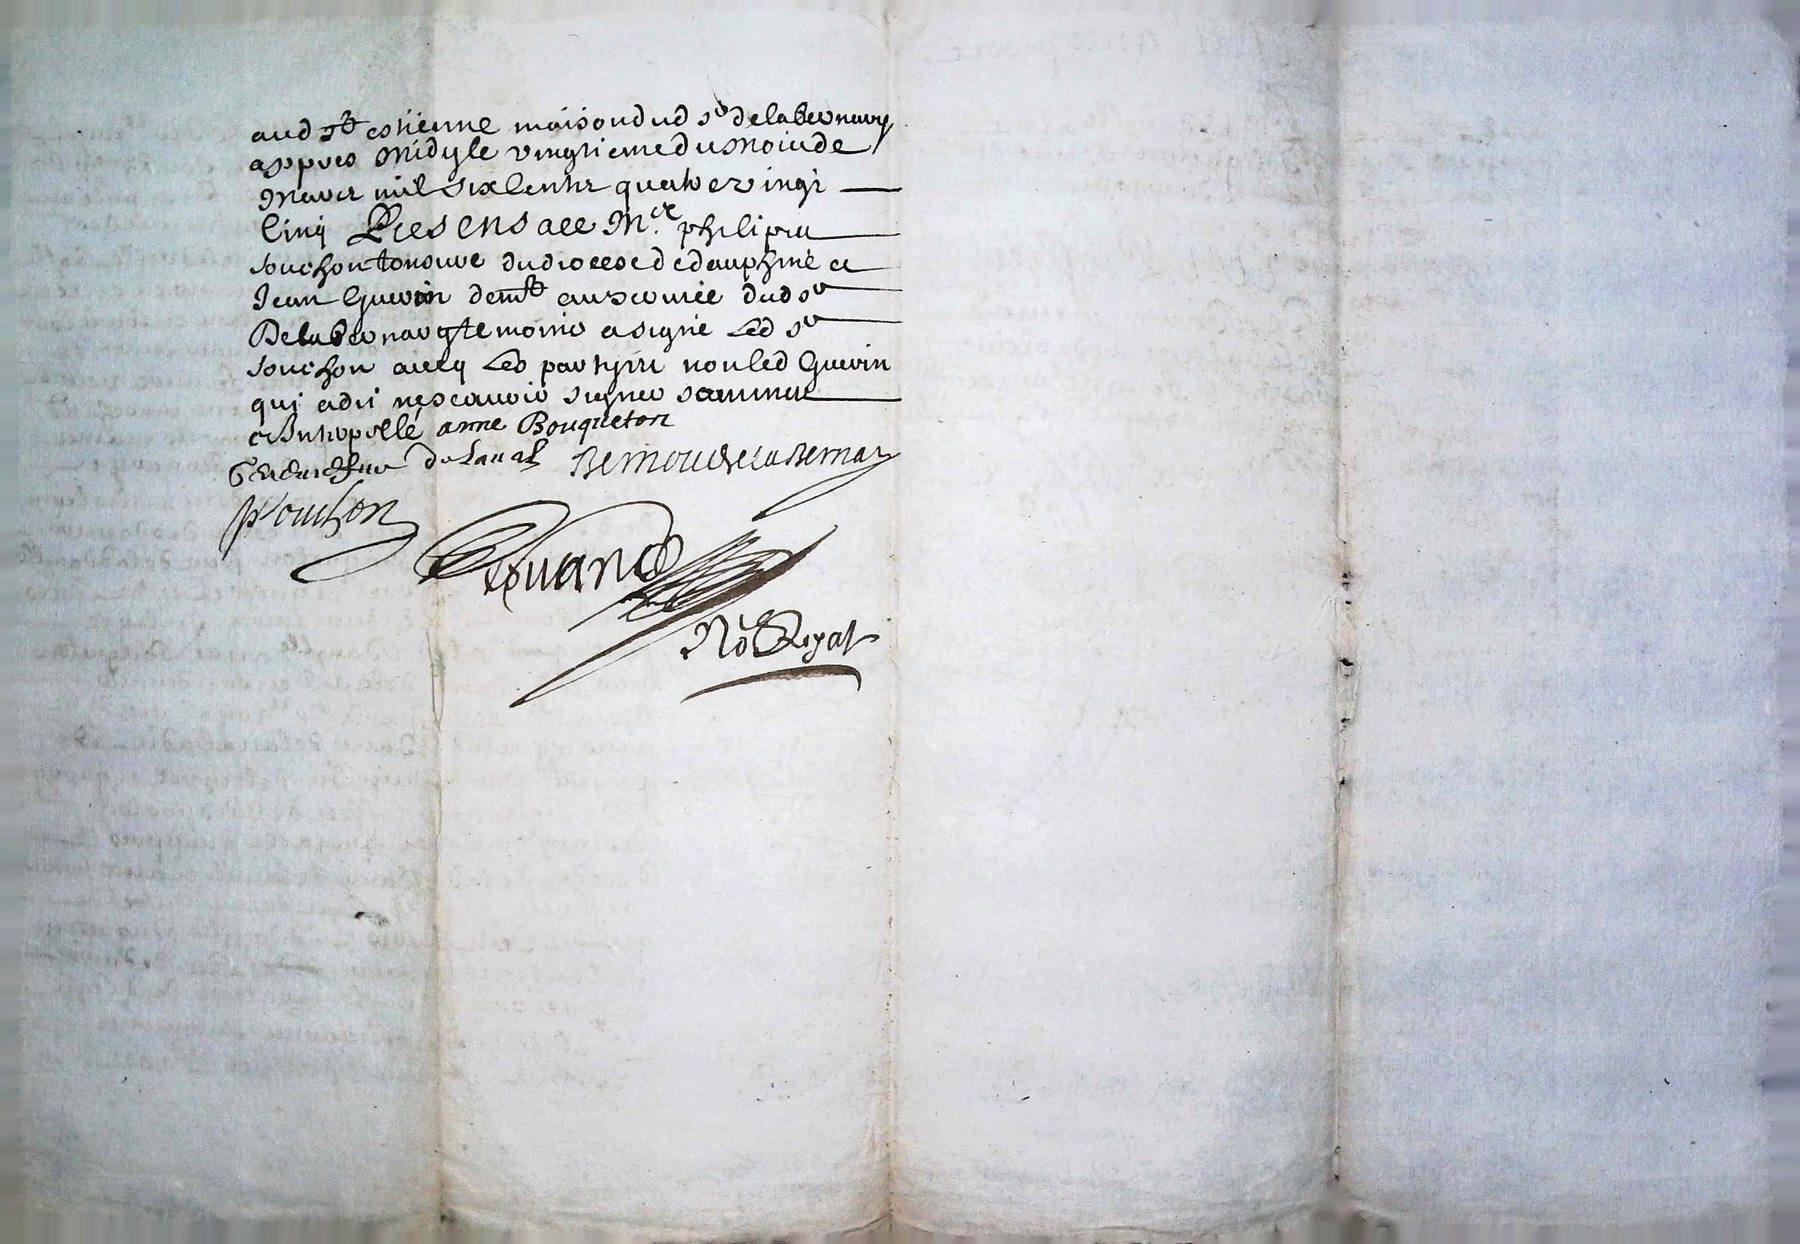 aud st estienne maison dud sr delabernary
appres midy le vingtieme du mois de
mars mil six cents quatre vingt
cinq Presens a ce Mre philipes
souchon tonsure du diocese de dauphine et
Jean Guerin demt au service dud sr
Delabernary temoins a signe Led sr
souchon avecq Les partyes non led Guerin
qui a dit ne scavoir signer somme
et Interpellé anne Bouqueton
Geneviefve de Laval Bernou de la Bernary
P Souchon
Rouand
No Royal